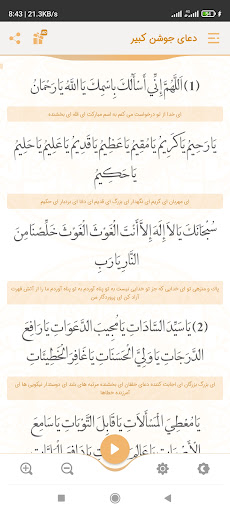 8:43 | 21.3KB/s
دعای جوشن کبیر
(1) اَللَّهُمَّ إِنِّي أَسْأَلُكَ بِاسْمِكَ يَا اَللَّهُ يَا رَحْمَانُ
ای خدا از تو درخواست می کنم به اسم مبارکت ای الله ای بخشنده
يَا رَحِيمُ يَا كَرِيمُ يَا مُقِيمُ يَا عَظِيمُ يَا قَدِيمُ يَا عَلِيمُ يَا حَلِيمُ
يَا حَكِيمُ
ای مهربان ای کریم ای نگهدار ای بزرگ ای قدیم ای دانا ای بردبار ای حکیم
سُبْحَانَكَ يَا لاَ إِلَهَ إِلاَّ أَنْتَ الْغَوْثَ الْغَوْثَ خَلِّصْنَا مِنَ
النَّارِ يَا رَبِّ
پاک و منزهی تو ای خدایی که جز تو خدایی نیست به تو پناه آوردم به تو پناه آوردم ما را از آتش قهرت
آزاد کن ای پروردگار من
(2) يَا سَيِّدَ السَّادَاتِ يَا مُجِيبَ الدَّعَوَاتِ يَا رَافِعَ
الدَّرَجَاتِ يَا وَلِيَّ الْحَسَنَاتِ يَا غَافِرَ الْخَطِيئَاتِ
ای بزرگ بزرگان ای اجابت کننده دعای خلقان ای بخشنده مرتبه های بلند ای دوستدار نیکویی ها ای
آمرزنده خطاها
يَا مُعْطِيَ الْمَسْأَلاَتِ يَا قَابِلَ التَّوْبَاتِ يَا سَامِعَ
الْأَصْوَاتِ يَا عَالِمَ يَا دَافِعَ الْبَلِيَّاتِ